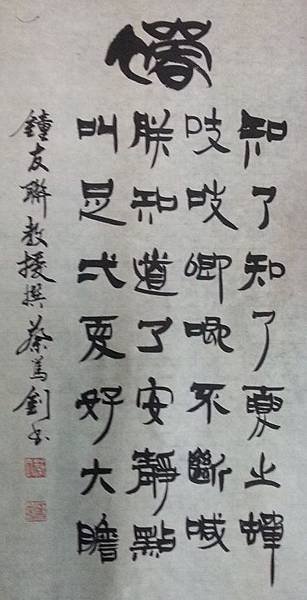 知了知了夏之蟬
吱吱唧唧不斷喊
朕知道了安靜點
叫是好大膽
鐘友聯教授撰蔡篤釗書